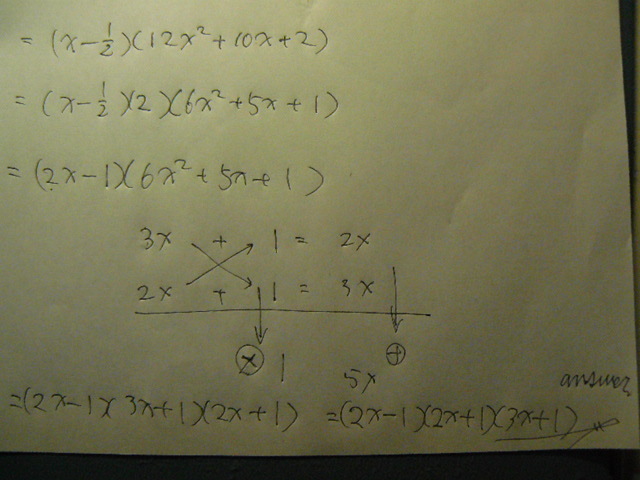 = (x-½)(12x²+10x+2)
= (x-½)(2)(6x²+5x+1)
= (2x-1)(6x²+5x+1)
3x + 1 = 2x
2x + 1 = 3x
⊗ 1 5x ⊕
answer
=(2x-1)(3x+1)(2x+1) =(2x-1)(2x+1)(3x+1)